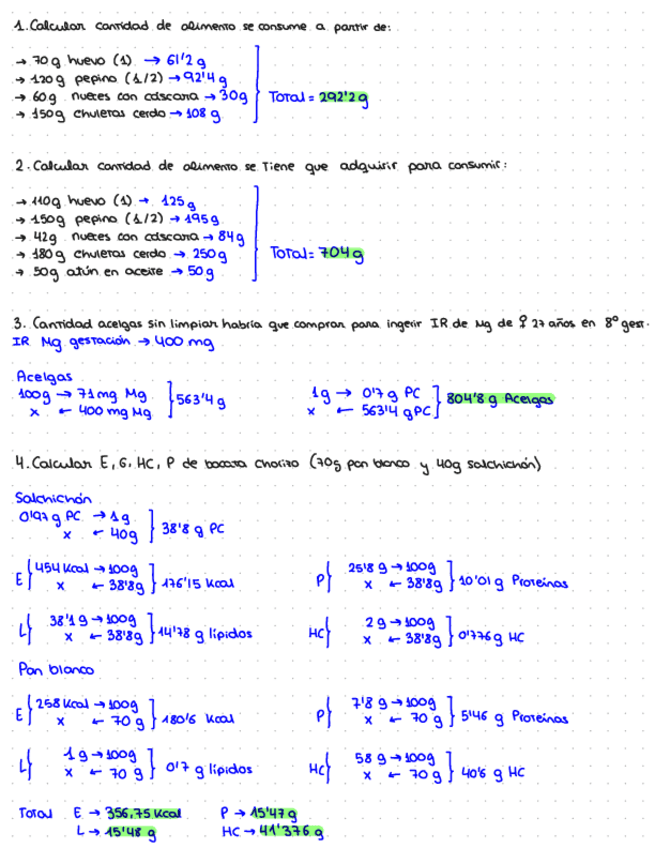 1. Calcular cantidad de alimento se consume a partir de:
→ 70g huevo (1) → 61'2 g
→ 120g pepino (1/2) → 92'4g
→ 60g nueces con cáscara → 30g
→ 150g chuletas cerdo → 108 g
Total = 292'2g
2. Calcular cantidad de alimento se tiene que adquirir para consumir:
→ 110g huevo (1) → 125g
→ 150g pepino (1/2) → 195g
→ 42g nueces con cáscara → 84g
→ 180g chuletas cerdo → 250g
→ 50g atún en aceite → 50g
Total = 704g
3. Cantidad acelgas sin limpiar habría que comprar para ingerir IR de Mg de ♀ 27 años en 8º gest.
IR Mg gestación → 400 mg
Acelgas
100g → 71mg Mg
x ← 400 mg Mg
} 563'4 g
1g → 0'7 g PC
x ← 563'4 g PC
} 804'8 g Acelgas
4. Calcular E, G, HC, P de bocata chorizo (70g pan blanco y 40g salchichón)
Salchichón
0'97 g PC → 1g
x ← 40g
] 38'8 g PC
E { 454 Kcal → 100g
x ← 38'8g
} 176'15 Kcal
P } 25'8 g → 100g
x ← 38'8g
} 10'01 g Proteínas
L } 38'1 g → 100g
x ← 38'8g
} 14'78 g lípidos
HC } 2g → 100g
x ← 38'8g
} 0'776g HC
Pan blanco
E { 258 Kcal → 100g
x ← 70 g
} 180'6 Kcal
P } 7'8 g → 100g
x ← 70 g
} 5'46 g Proteínas
L } 1g → 100g
x ← 70 g
} 0'7 g lípidos
HC } 58 g → 100g
x ← 70 g
} 40'6 g HC
Total E → 356,75 Kcal P → 15'47 g
L → 15'48 g HC → 41'376 g